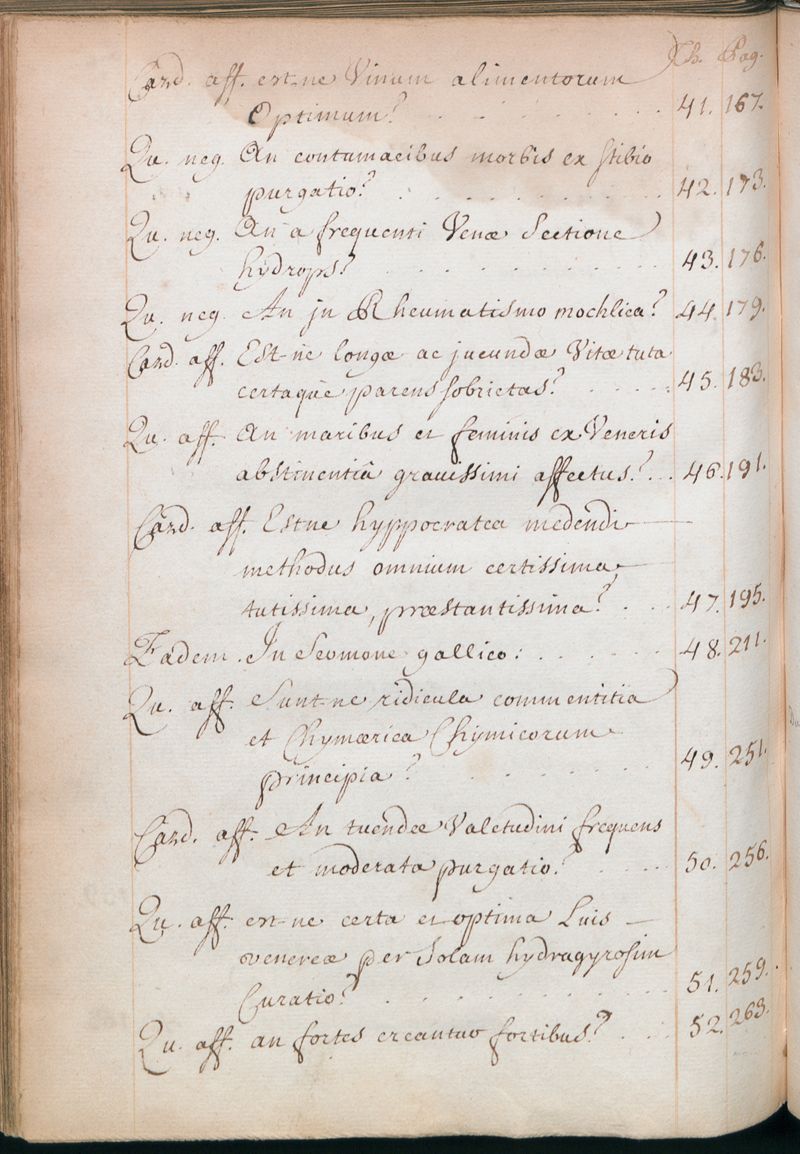 Th. Pag.
Card. aff. est-ne Vinum alimentorum
Optimum? 41. 167.
Qu. neg. An contumacibus morbis ex stibio
purgatio? 42. 173.
Qu. neg. An a frequenti Venæ Sectione
hydrops? 43. 176.
Qu. neg. An jn Rheumatismo mochlica? 44. 179.
Card. aff. Est-ne longæ ac jucundæ Vitæ tuta
certaque parens sobrietas? 45. 183.
Qu. aff. An maribus et feminis ex Veneris
abstinentiâ grauissimi affectus? 46. 191.
Card. aff. Estne hyppocratea medendi
methodus omnium certissima,
tutissima, præstantissima? 47. 195.
Eadem. In Sermone gallico: 48. 211.
Qu. aff. Sunt-ne ridicula commentitia
et Chymærica Chymicorum
principia? 49. 251.
Card. aff. An tuendæ Valetudini frequens
et moderata purgatio? 50. 256.
Qu. aff. est-ne certa et optima Luis
venereæ per Solam hydragyrosim
Curatio? 51. 259.
Qu. aff. an fortes creantur fortibus? 52. 263.